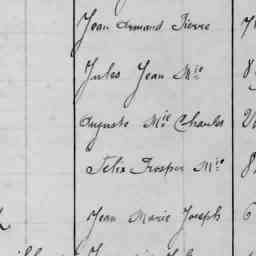 Jean Armand Pierre
Jules Jean Mie
Auguste Mie Charles
Félix Prosper Mie
Jean Marie Joseph